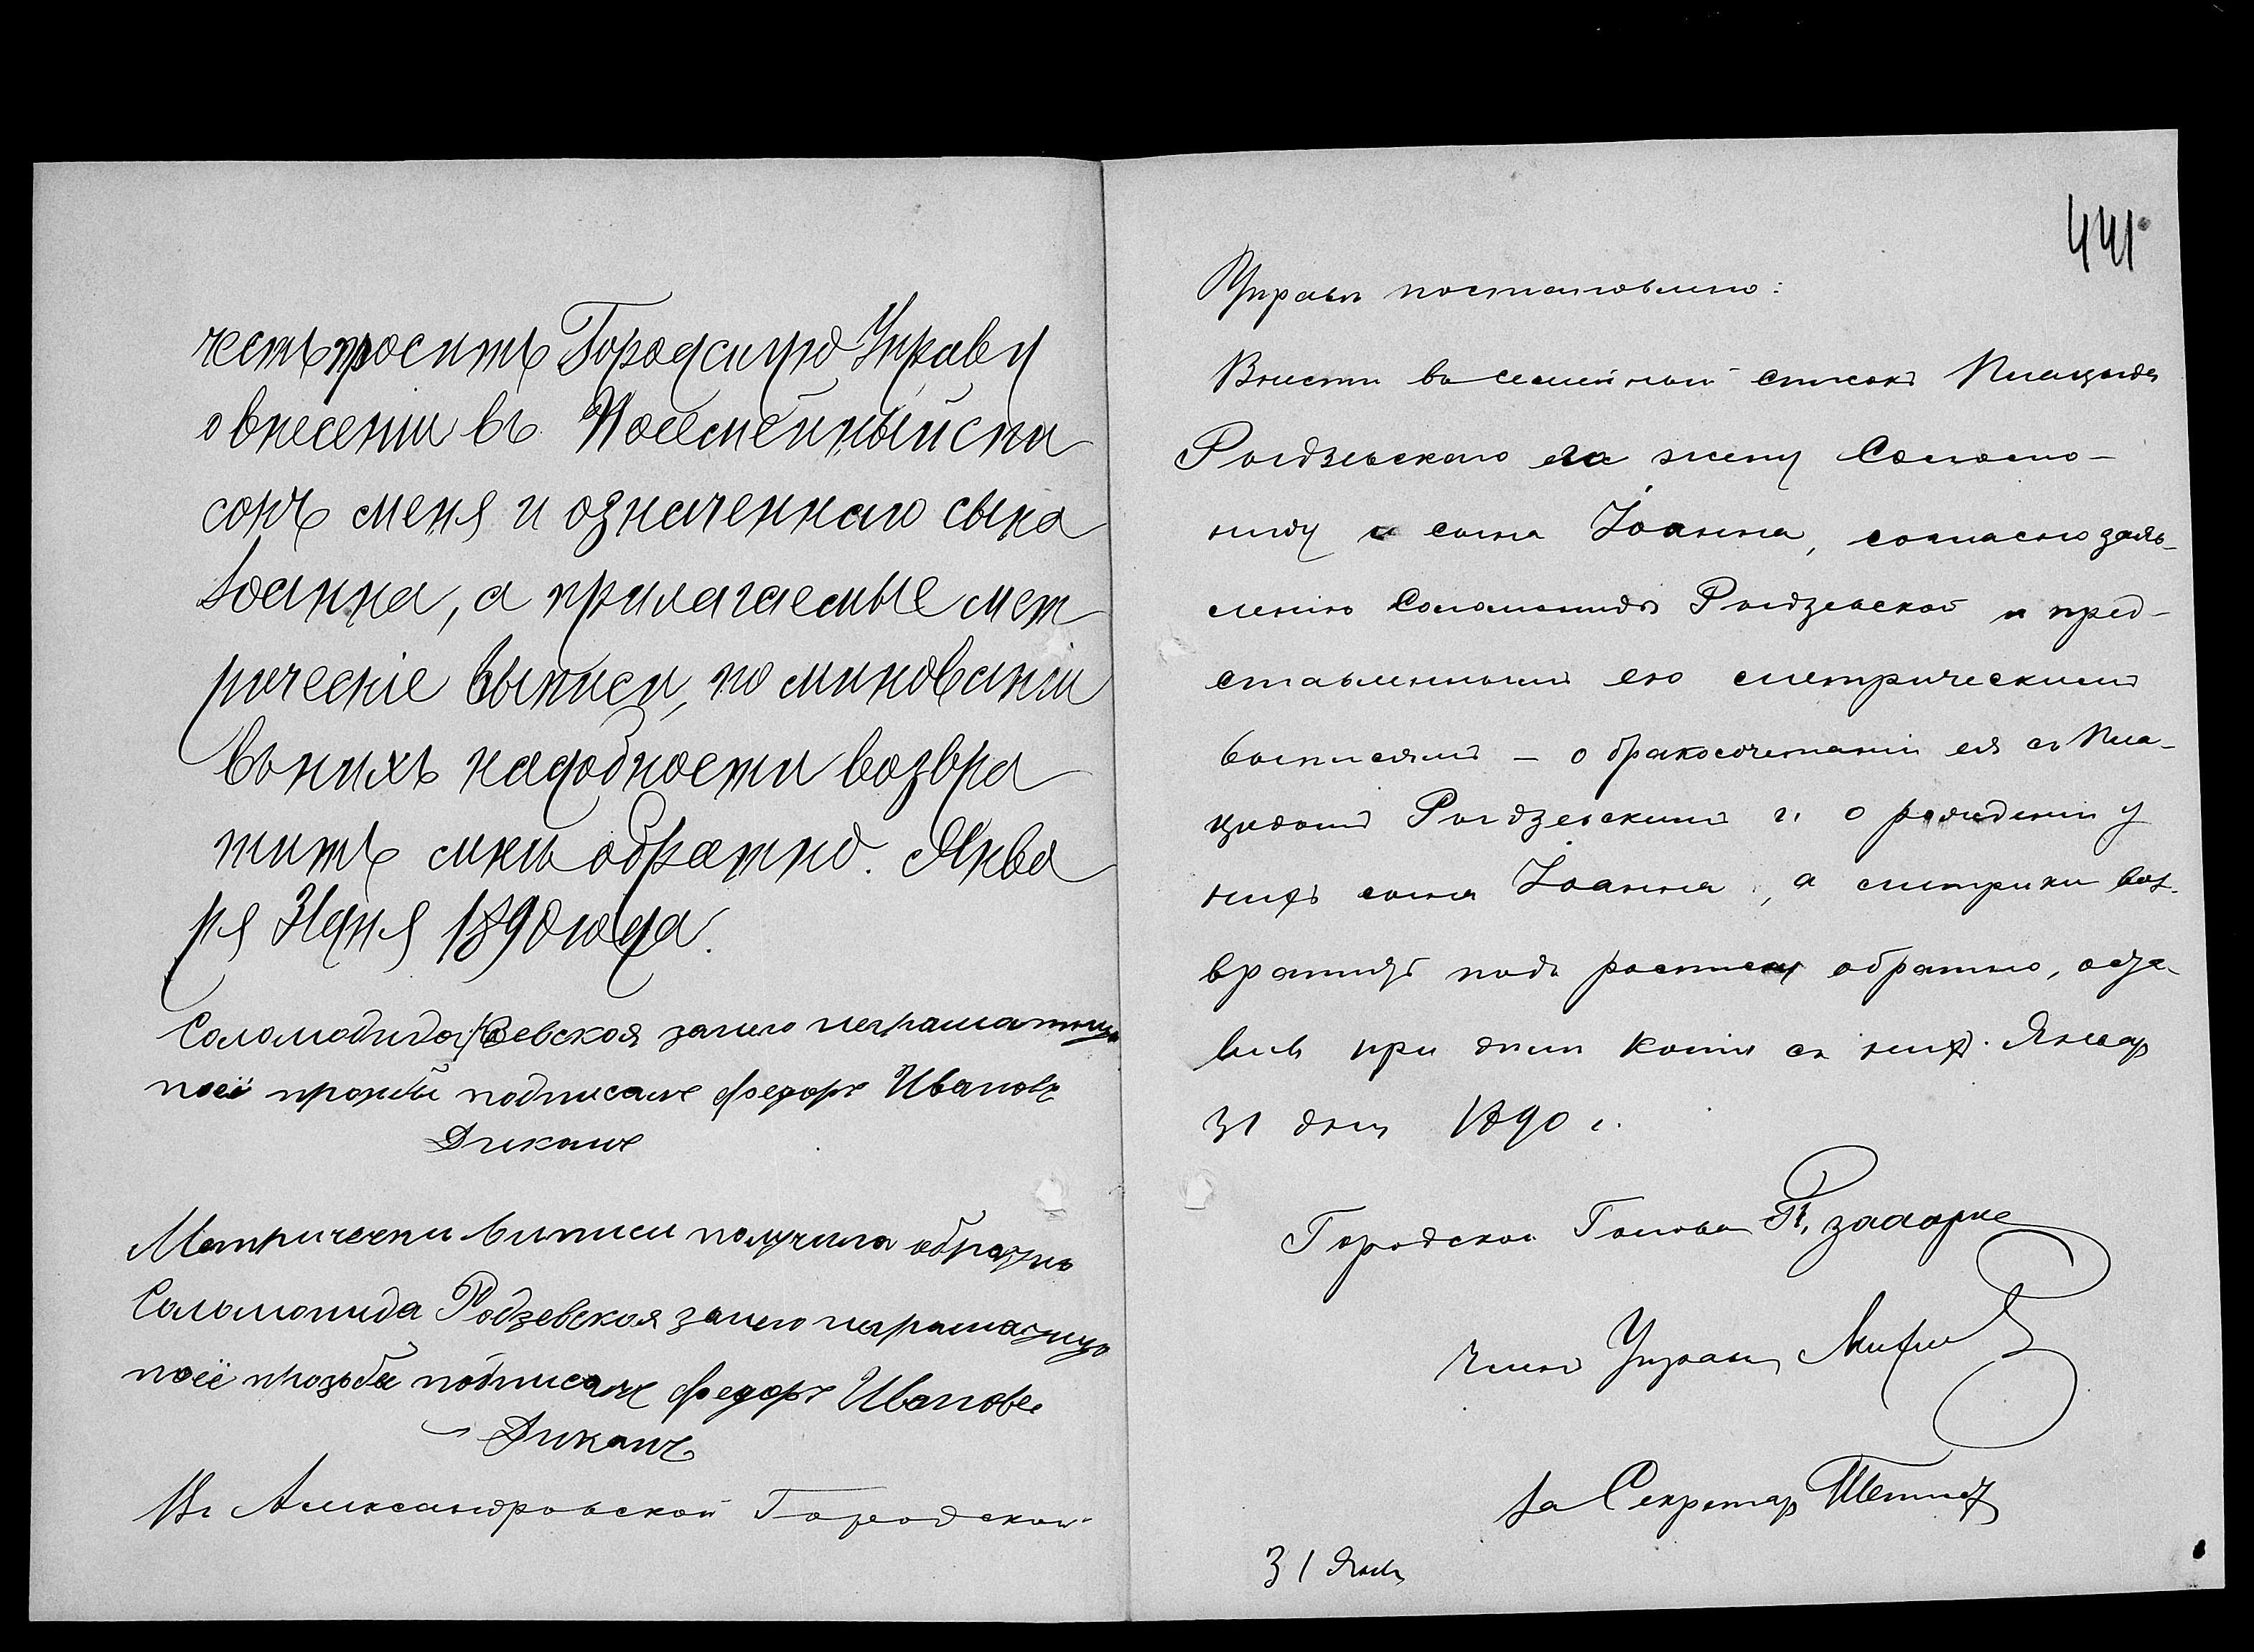 честь просить Городскую Управу
о внесении въ Посемейный спи
сокъ меня и означеннаго сына
Іоанна, а прилагаемые мет
рическіе выписи, по миновании
въ нихъ надобности возвра
тить мнѣ обратно. Янва
ря 31 дня 1890 года.
Соломонида Ро
зевская занею неграматную
поеё прозьбы подписалъ федоръ Ивановъ
Диканъ
Метрически виписи получила обратно
Саломонида Родзевская занею неграматную
поеё прозьбы подписалъ федоръ Ивановъ
Диканъ
Въ Александровской Городской
441
Управѣ постановлено:
Внести въ семейный списокъ Плацыда
Рыдзевскаго его жену Соломо-
ниду и сына Іоанна, согласно заяв-
ленію Соломониды Рыдзевской и пред-
ставленнымъ ею метрическимъ
выписямъ – о бракосочетаніи ея съ Пла-
цидомъ Рыдзевскимъ и о рожденіи у
нихъ сына Іоанна, а метрики воз-
вратить подъ росписку обратно, оста-
вивъ при дѣлѣ копіи съ нихъ. Январ
31 дня 1890 г.
Городской Голова
Членъ Управы
За Секретар
31 Янв.